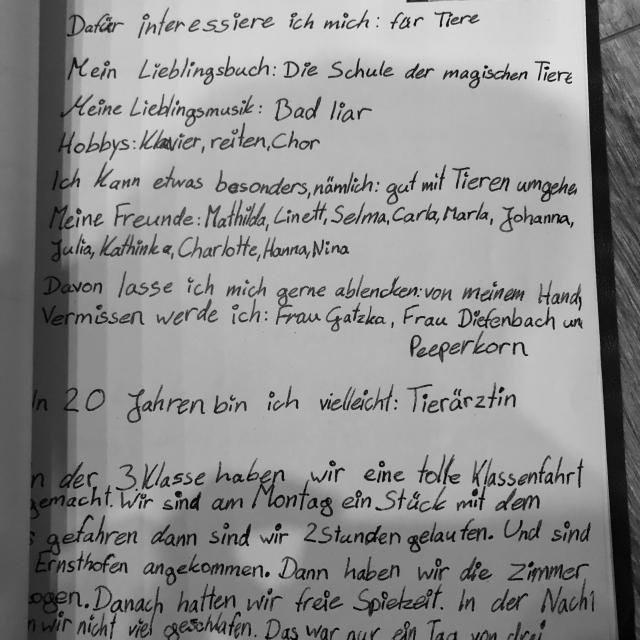 Dafür interessiere ich mich: für Tiere
Mein Lieblingsbuch: Die Schule der magischen Tiere
Meine Lieblingsmusik: Bad liar
Hobbys: Klavier, reiten, Chor
Ich kann etwas besonders, nämlich: gut mit Tieren umgehen
Meine Freunde: Mathilda, Linett, Selma, Carla, Marla, Johanna,
Julia, Kathinka, Charlotte, Hanna, Nina
Davon lasse ich mich gerne ablencken: von meinem Hand
Vermissen werde ich: Frau Gatzka, Frau Diefenbach un
Peeperkorn
In 20 Jahren bin ich vielleicht: Tierärztin
n der 3. Klasse haben wir eine tolle Klassenfahrt
gemacht. Wir sind am Montag ein Stück mit dem
gefahren dann sind wir 2 Stunden gelaufen. Und sind
Ernsthofen angekommen. Dann haben wir die Zimmer
ogen. Danach hatten wir freie Spielzeit. In der Nacht
n wir nicht viel geschlafen. Das war nur ein Tag von drei